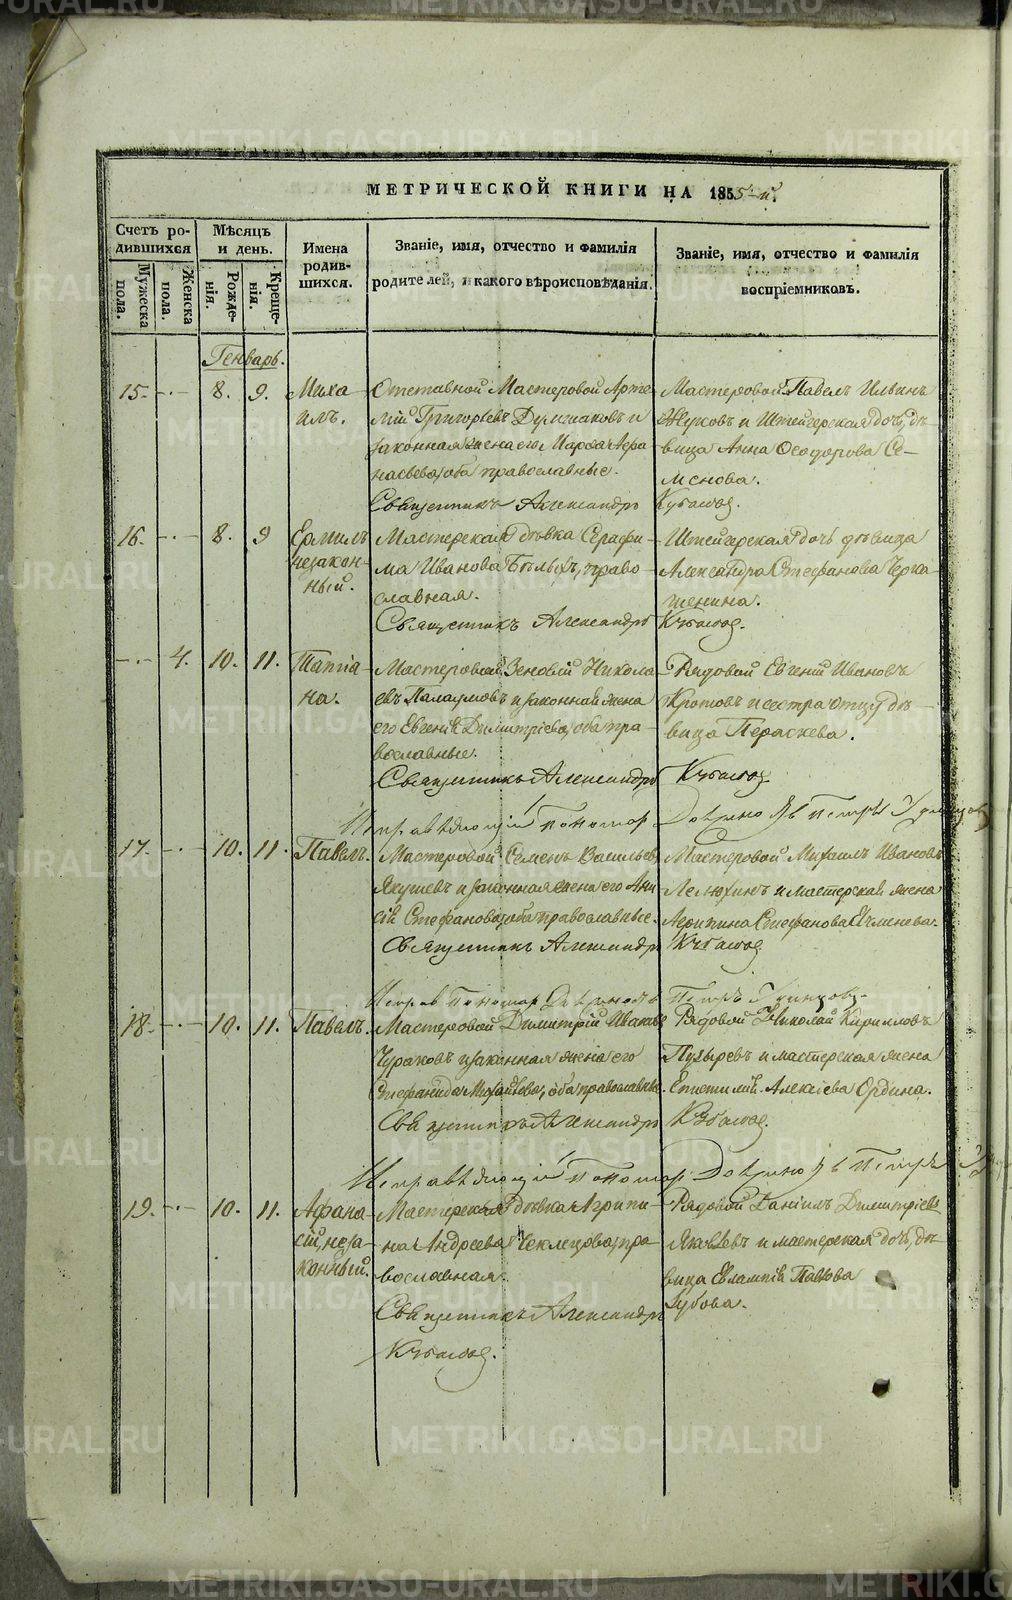 МЕТРИЧЕСКОЙ КНИГИ НА 1855-й.
Счетъ ро-
дившихся
Мужеска
пола.
Женска
пола.
Мѣсяцъ
и день.
Рожде-
нія.
Креще-
нія.
Имена
родив-
шихся.
Званіе, имя, отчество и фамилія
родителей, и какого вѣроисповѣданія.
Званіе, имя, отчество и фамилія
воспріемниковъ.
Генварь.
15. 8. 9.
Миха-
илъ.
Отставной Мастеровой Арте-
мій Григорьевъ и
законная жена его Марѳа Аѳа-
насьева, оба православные.
Священникъ Александръ
Мастеровой Павелъ Ильинъ
Жуковъ и Штейгерская дочь, дѣ-
вица Анна Ѳеодорова Се-
менова.
16. 8. 9
Ермилъ
незакон-
ный.
Мастерская дѣвка Серафи-
ма Иванова Бѣлыхъ, право-
славная.
Священникъ Александръ
Штейгерская дочь дѣвица
Александра Стефанова Черка-
шенина.
4. 10. 11.
Татіа-
на.
Мастеровой Зеновій Никола-
евъ и законная жена
его Евгенія Димитріева, оба пра-
вославные.
Священникъ Александръ
Рядовой Евгеній Ивановъ
Кротовъ и сестра отцу, дѣ-
вица Параскева.
Пономарь Петръ
17. 10. 11.
Павелъ.
Мастеровой Семенъ Васильевъ
Якушевъ и законная жена его Ани-
сія Стефанова, оба православные.
Священникъ Александръ
Мастеровой Михаилъ Ивановъ
и мастерская жена
Агрипина Стефанова
Пономарь Петръ
18. 10. 11.
Павелъ.
Мастеровой Димитрій Ивановъ
Чураковъ и законная жена его
Стефанида Михайлова, оба православные.
Священникъ Александръ
Рядовой Николай Кирилловъ
Пузыревъ и мастерская жена
Епистимія Алексіева Ордина.
Пономарь Петръ
19. 10. 11.
Афана-
сій, неза-
конный.
Мастерская дѣвка Агрипи-
на Андреева Чеклецова, пра-
вославная.
Священникъ Александръ
Рядовой Даніилъ Димитріевъ
Яковлевъ и мастерская дочь, дѣ-
вица Евлампія Павлова
Зубова.
METRIKI.GASO-URAL.RU